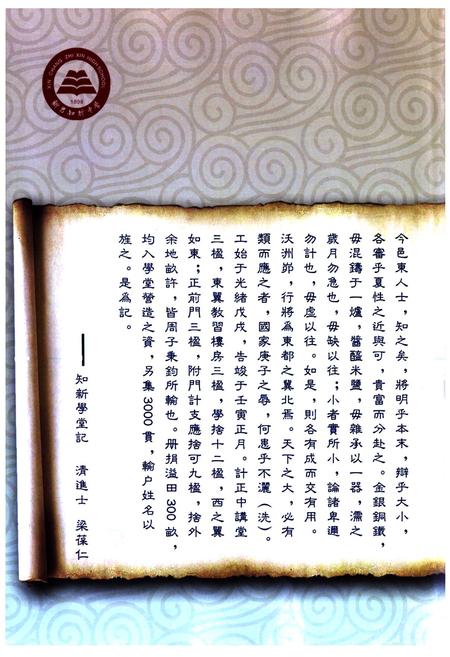 XIN CHANG ZHI XIN HIGH SCHOOL
1898
新昌知新中学
今邑東人士，知之矣，將明乎本末，辯乎大小，
各審乎夏性之近與可，貴富而分赴之。金銀銅鐵，
毋混鑄于一爐，醬醯米鹽，毋雜承以一器，濡之
歲月勿急也，毋缺以往；小者實所小，論諸卑邇
勿計也，毋虛以往。如是，則各有成而交有用。
沃洲茆，行將為東都之翼北焉。天下之大，必有
類而應之者，國家庚子之辱，何患乎不灑（洗）。
工始于光緒戊戌，告竣于壬寅正月。計正中講堂
三楹，東翼教習樓房三楹，學捨十二楹，西之翼
如東；正前門三楹，附門計支應捨可九楹，捨外
余地畝許，皆周子秉鈞所輸也。冊捐溢田300畝，
均入學堂營造之資，另集3000貫，輸户姓名以
旌之。是為記。
——知新學堂記 清進士 梁葆仁